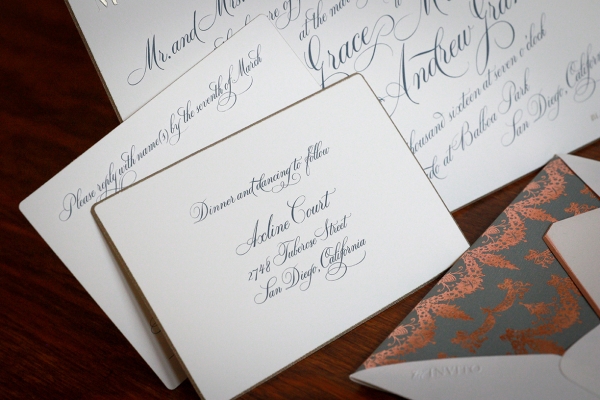 Mr. and Mrs.
at the ma
Grace M
Andrew Gra
housand sixteen at seven o'clock
at Balboa Park
San Diego, Californ
Please reply with name(s) by the seventh of March
Dinner and dancing to follow
Axline Court
2748 Tuberose Street
San Diego, California